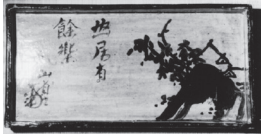 幽居有
餘樂